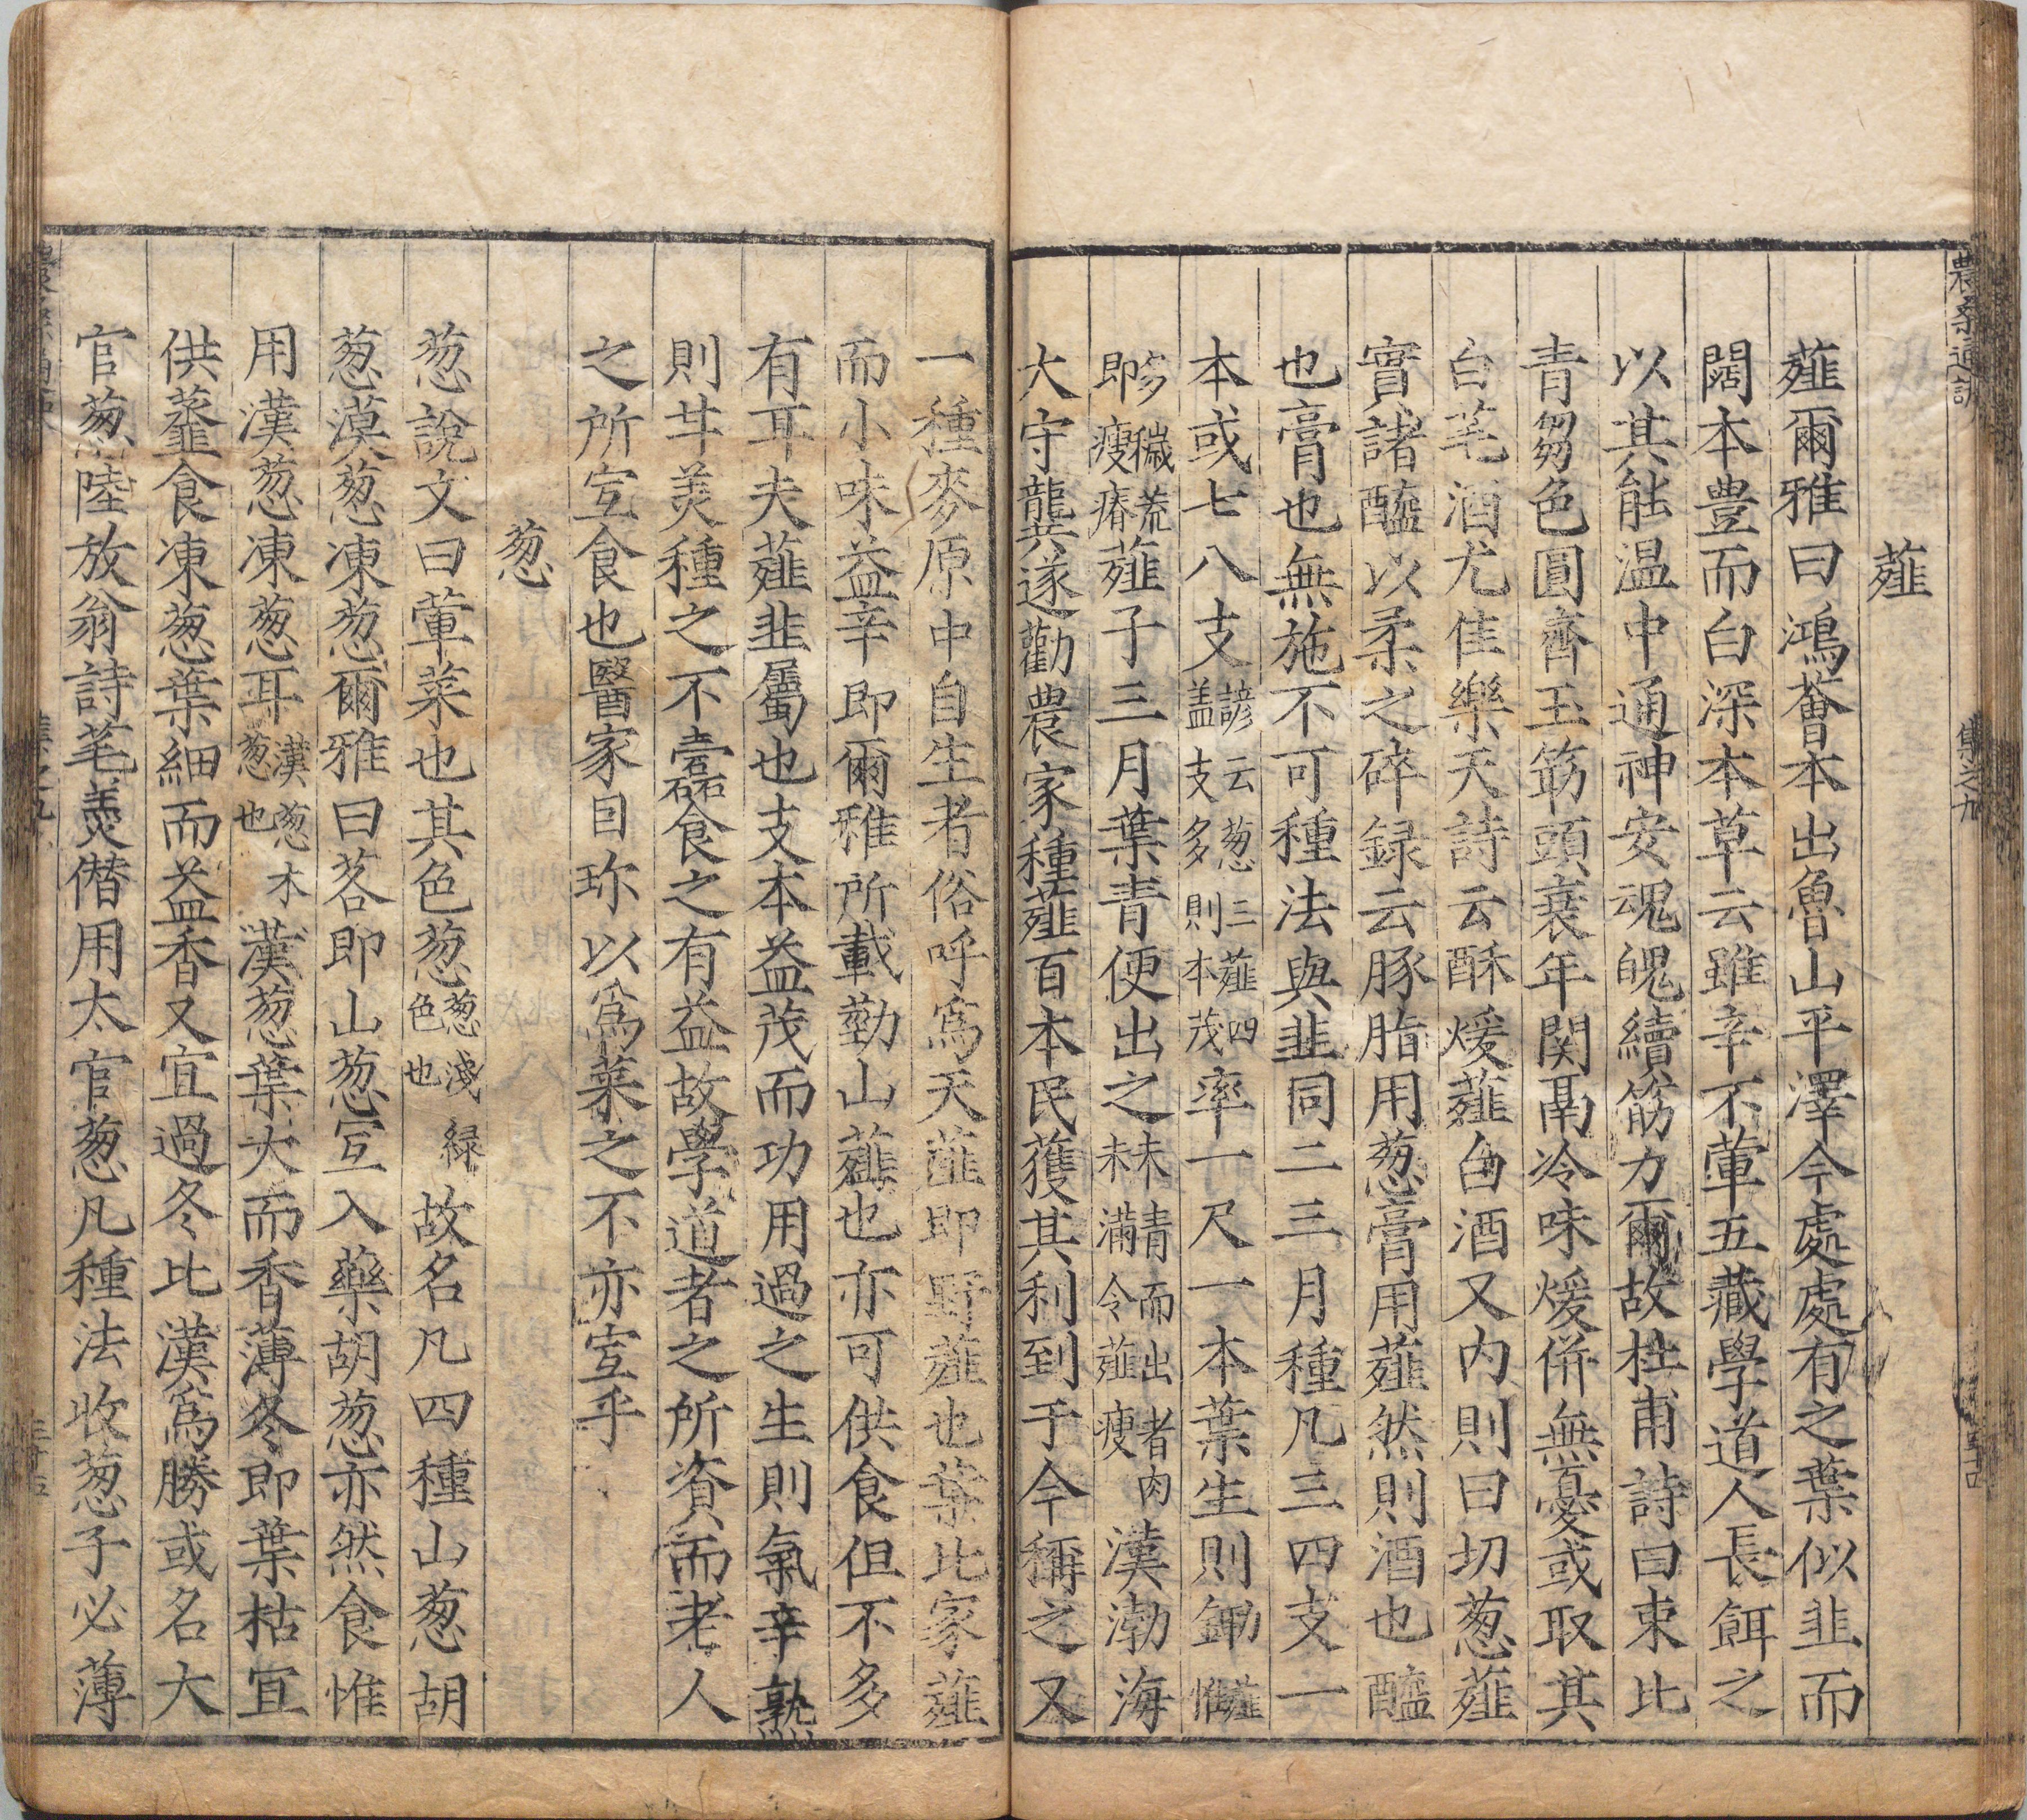 薤
薤爾雅曰鴻薈本出魯山平澤今處處有之葉似韭而
闊本豊而白深本草云雖辛不葷五藏學道人長餌之
以其能温中通神安魂魄續筋力爾故杜甫詩曰束比
青芻色圓齊玉筯頭衰年関鬲冷味煖併無憂或取其
白芼酒尤佳樂天詩云酥煖薤白酒又内則曰切葱薤
實諸醯以柔之碎録云豚脂用葱膏用薤然則酒也醯
也膏也無施不可種法與韭同二三月種凡三四支一
本或七八支諺云葱三薤四盖支多則本茂率一尺一本葉生則鋤薤惟
多穢荒即瘦瘠薤子三月葉青便出之未青而出者肉未滿令薤瘦漢渤海
大守龔遂勸農家種薤百本民獲其利到于今稱之又
一種麥原中自生者俗呼爲天薤即野薤也葉比家薤
而小味益辛即爾雅所載勤山薤也亦可供食但不多
有耳夫薤韭屬也支本益茂而功用過之生則氣辛熟
則甘美種之不蠹食之有益故學道者之所資而老人
之所宜食也醫家目珎以爲菜之不亦宜乎
葱
葱說文曰葷菜也其色葱葱淺緑色也故名凡四種山葱胡
葱漠葱凍葱爾雅曰茖即山葱宜入藥胡葱亦然食惟
用漢葱凍葱耳漢葱木葱也漢葱葉大而香薄冬即葉枯宜
供虀食凍葱葉細而益香又宜過冬比漢爲勝或名大
官葱陸放翁詩芼羹僭用太官葱凡種法收葱子必薄
農桑通訣
集之九